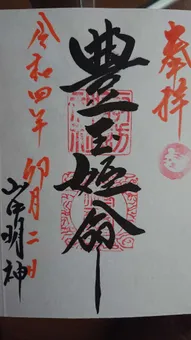 奉拝
豊玉姫命
令和四年
卯月二日
山中明神